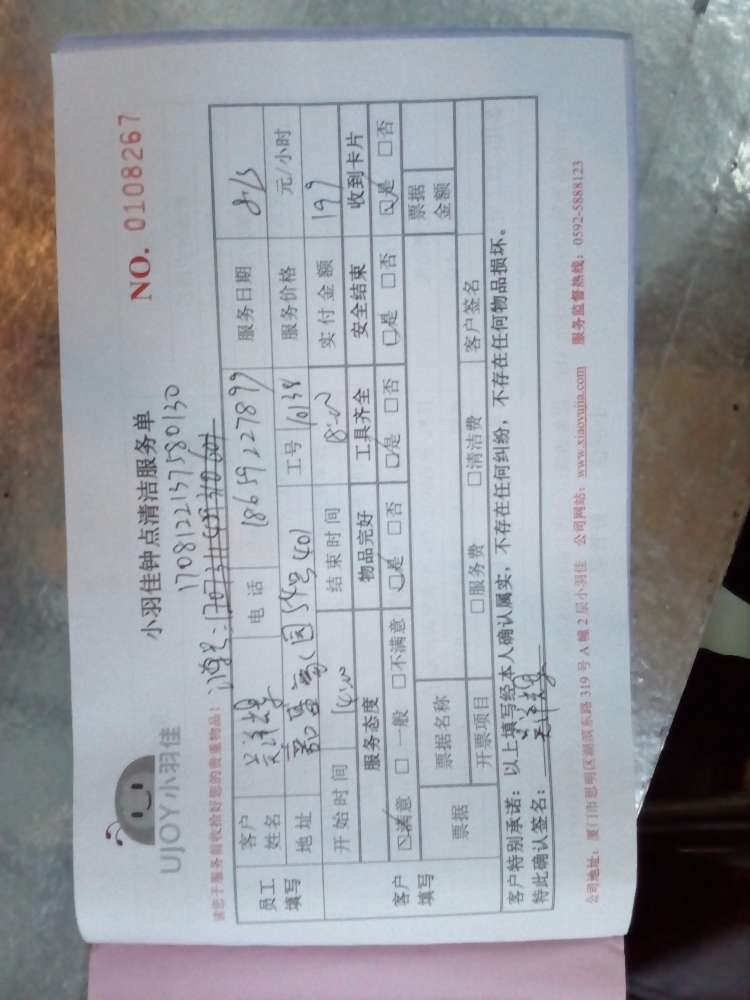 UJOY小羽佳
小羽佳钟点清洁服务单
NO. 0108267
1708122137580130
请您于服务前收拾好您的贵重物品!
员工填写 客户姓名 电话 18659227899 服务日期 8.13
地址 54号401 工号 10138 服务价格 元/小时
开始时间 14:00 结束时间 18:00 实付金额 199
客户填写 服务态度 物品完好 工具齐全 安全结束 收到卡片
☑满意 □一般 □不满意 ☑是 □否 ☑是 □否 ☑是 □否 ☑是 □否
票据 票据名称 票据金额
开票项目 □服务费 □清洁费 客户签名
客户特别承诺:以上填写经本人确认属实,不存在任何纠纷,不存在任何物品损坏。
特此确认签名:
公司地址:厦门市思明区湖滨东路319号A幢2层小羽佳 公司网站:www.xiaoyujia.com 服务监督热线:0592-5888123